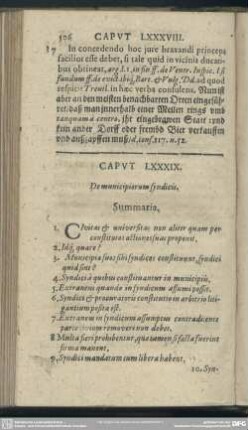 506 CAPVT LXXXVIII.
17 In concedendo hoc jure braxandi princeps
facilior esse debet, si tale quid in vicinis ducatibus
obtineat, arg. l.1, in fin ff. de Ventr. Inspic. l. si
fundum ff. de evict. ibiq. Bart. & Vulg. Dd. ad quod
respicit Treutl. in hac verba consulens. Nun ist
aber an den meisten benachbarten Orten eingeführt,
daß man innerhalb einer Meilen rings umb
tanquam à centro, ihr eingegraben Statt und
kein ander Dorff oder frembd Bier verkauffen
und außzapffen muß, id. conf. 217. n. 52.
CAPVT LXXXIX.
De municipiorum syndicis.
Summaria.
1. Civitas & universitas non aliter quam per
constitutos actiones suas proponit.
2. Idq; quare?
3. Municipia suos sibi syndicos constituunt, syndici
quid sint?
4. Syndici à quibus constituantur in municipiis.
5. Extraneus quando in syndicum assumi possit.
6. Syndici & procuratoris constitutio in arbitrio litigantium
posita est.
7. Extraneus in syndicum assumptus contradicente
parte removeri non debet.
8 Multa fieri prohibentur, quæ tamen si facta fuerint
firma manent.
9. Syndici mandatum cum libera habent.
10. Syn-